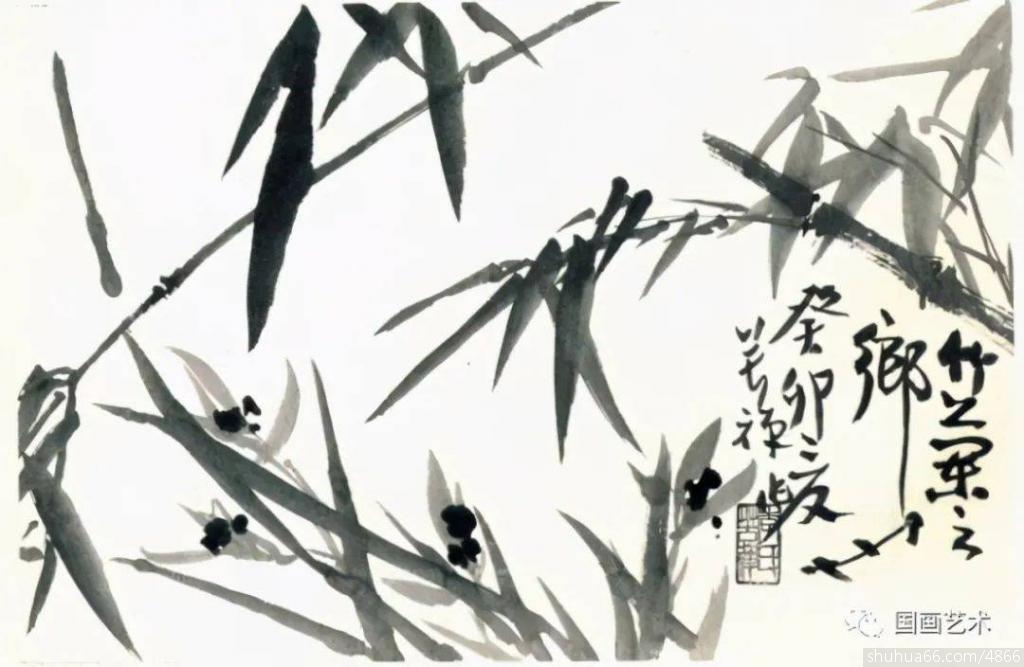 竹蘭之
鄉
癸卯之夏
苦禪
国画艺术
shuhua66.com/4866